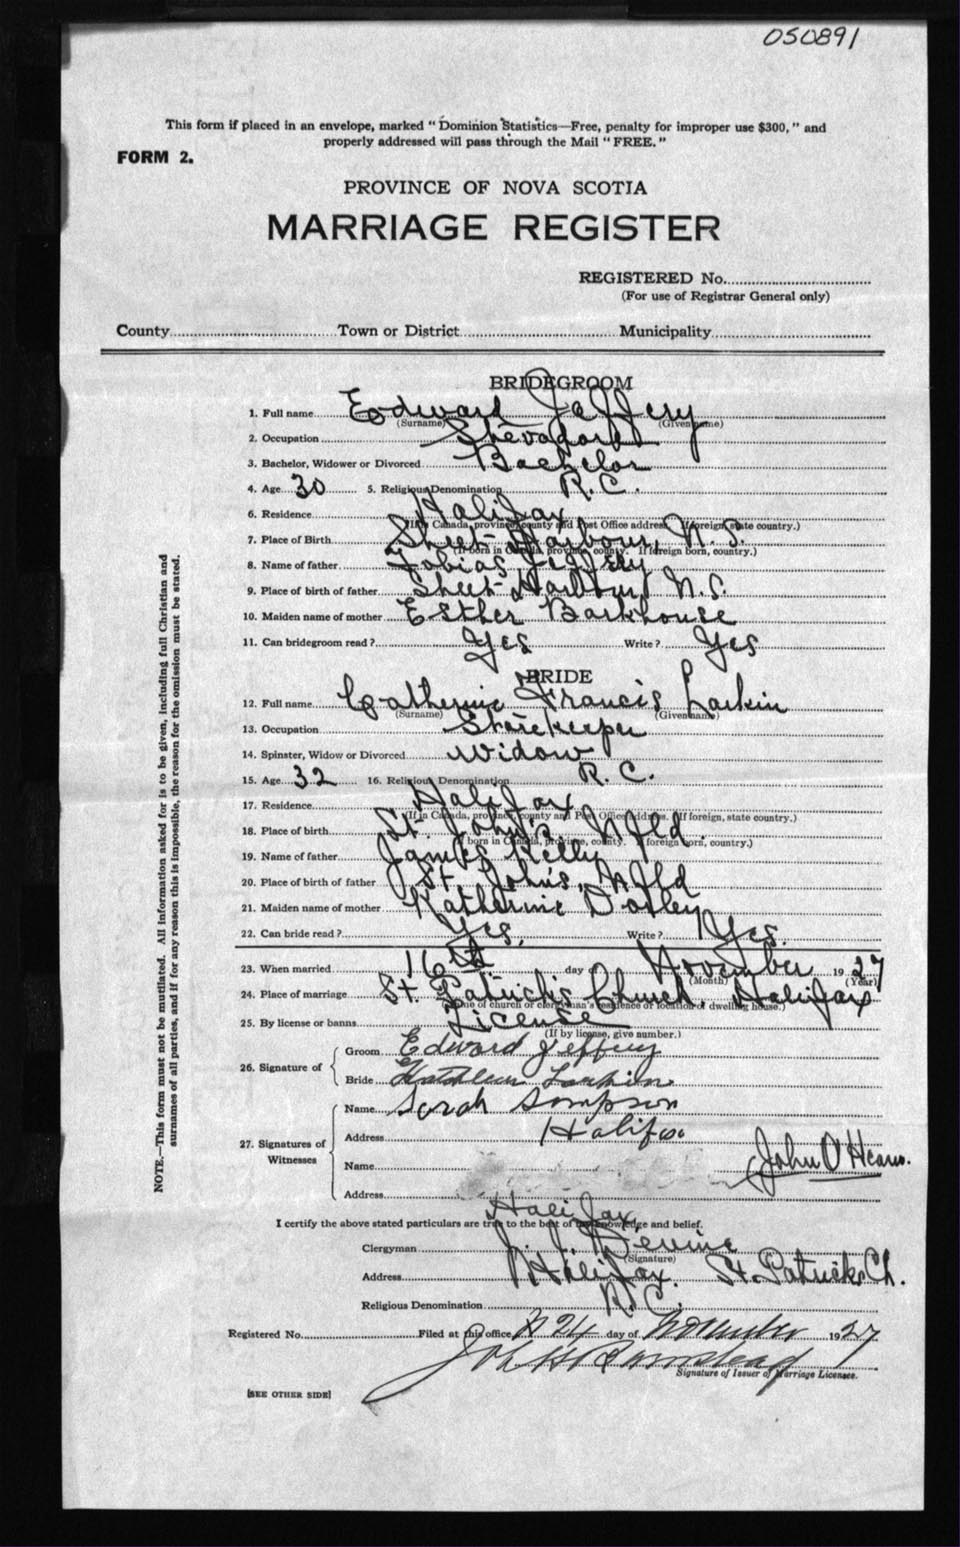 050891
This form if placed in an envelope, marked "Dominion Statistics—Free, penalty for improper use $300," and
properly addressed will pass through the Mail "FREE."
FORM 2.
PROVINCE OF NOVA SCOTIA
MARRIAGE REGISTER
REGISTERED No.
(For use of Registrar General only)
County Town or District Municipality
NOTE.—This form must not be mutilated. All information asked for is to be given, including full Christian and
surnames of all parties, and if for any reason this is impossible, the reason for the omission must be stated.
BRIDEGROOM
1. Full name Edward Jeffery
(Surname) (Given name)
2. Occupation
3. Bachelor, Widower or Divorced Bachelor
4. Age 30 5. Religious Denomination R.C.
6. Residence Halifax
(If in Canada, province, county and Post Office address. If foreign, state country.)
7. Place of Birth Sheet Harbour, N.S.
(If born in Canada, province, county. If foreign born, country.)
8. Name of father Tobias Jeffery
9. Place of birth of father Sheet Harbour N.S.
10. Maiden name of mother Esther Barkhouse
11. Can bridegroom read? Yes Write? Yes
BRIDE
12. Full name Catherine Francis Larkin
(Surname) (Given name)
13. Occupation Storekeeper
14. Spinster, Widow or Divorced Widow
15. Age 32 16. Religious Denomination R.C.
17. Residence Halifax
(If in Canada, province, county and Post Office address. If foreign, state country.)
18. Place of birth St. John's, Nfld.
(If born in Canada, province, county. If foreign born, country.)
19. Name of father James Kelly
20. Place of birth of father St. John's, Nfld
21. Maiden name of mother Katherine
22. Can bride read? Yes. Write? Yes.
23. When married 16 day of November 1927
(Month) (Year)
24. Place of marriage St. Patrick's Church, Halifax
(Name of church or clergyman's residence or location of dwelling house.)
25. By license or banns License
(If by license, give number.)
26. Signature of
Groom Edward Jeffery
Bride Kathleen Larkin
27. Signatures of Witnesses
Name Sarah Simpson
Address Halifax
Name John O'Hearn.
Address Halifax
I certify the above stated particulars are true to the best of my knowledge and belief.
Clergyman Devine
(Signature)
Address Halifax. St. Patricks Ch.
Religious Denomination R.C.
Registered No. Filed at this office 24 day of November 1927
Signature of Issuer of Marriage Licenses.
[SEE OTHER SIDE]